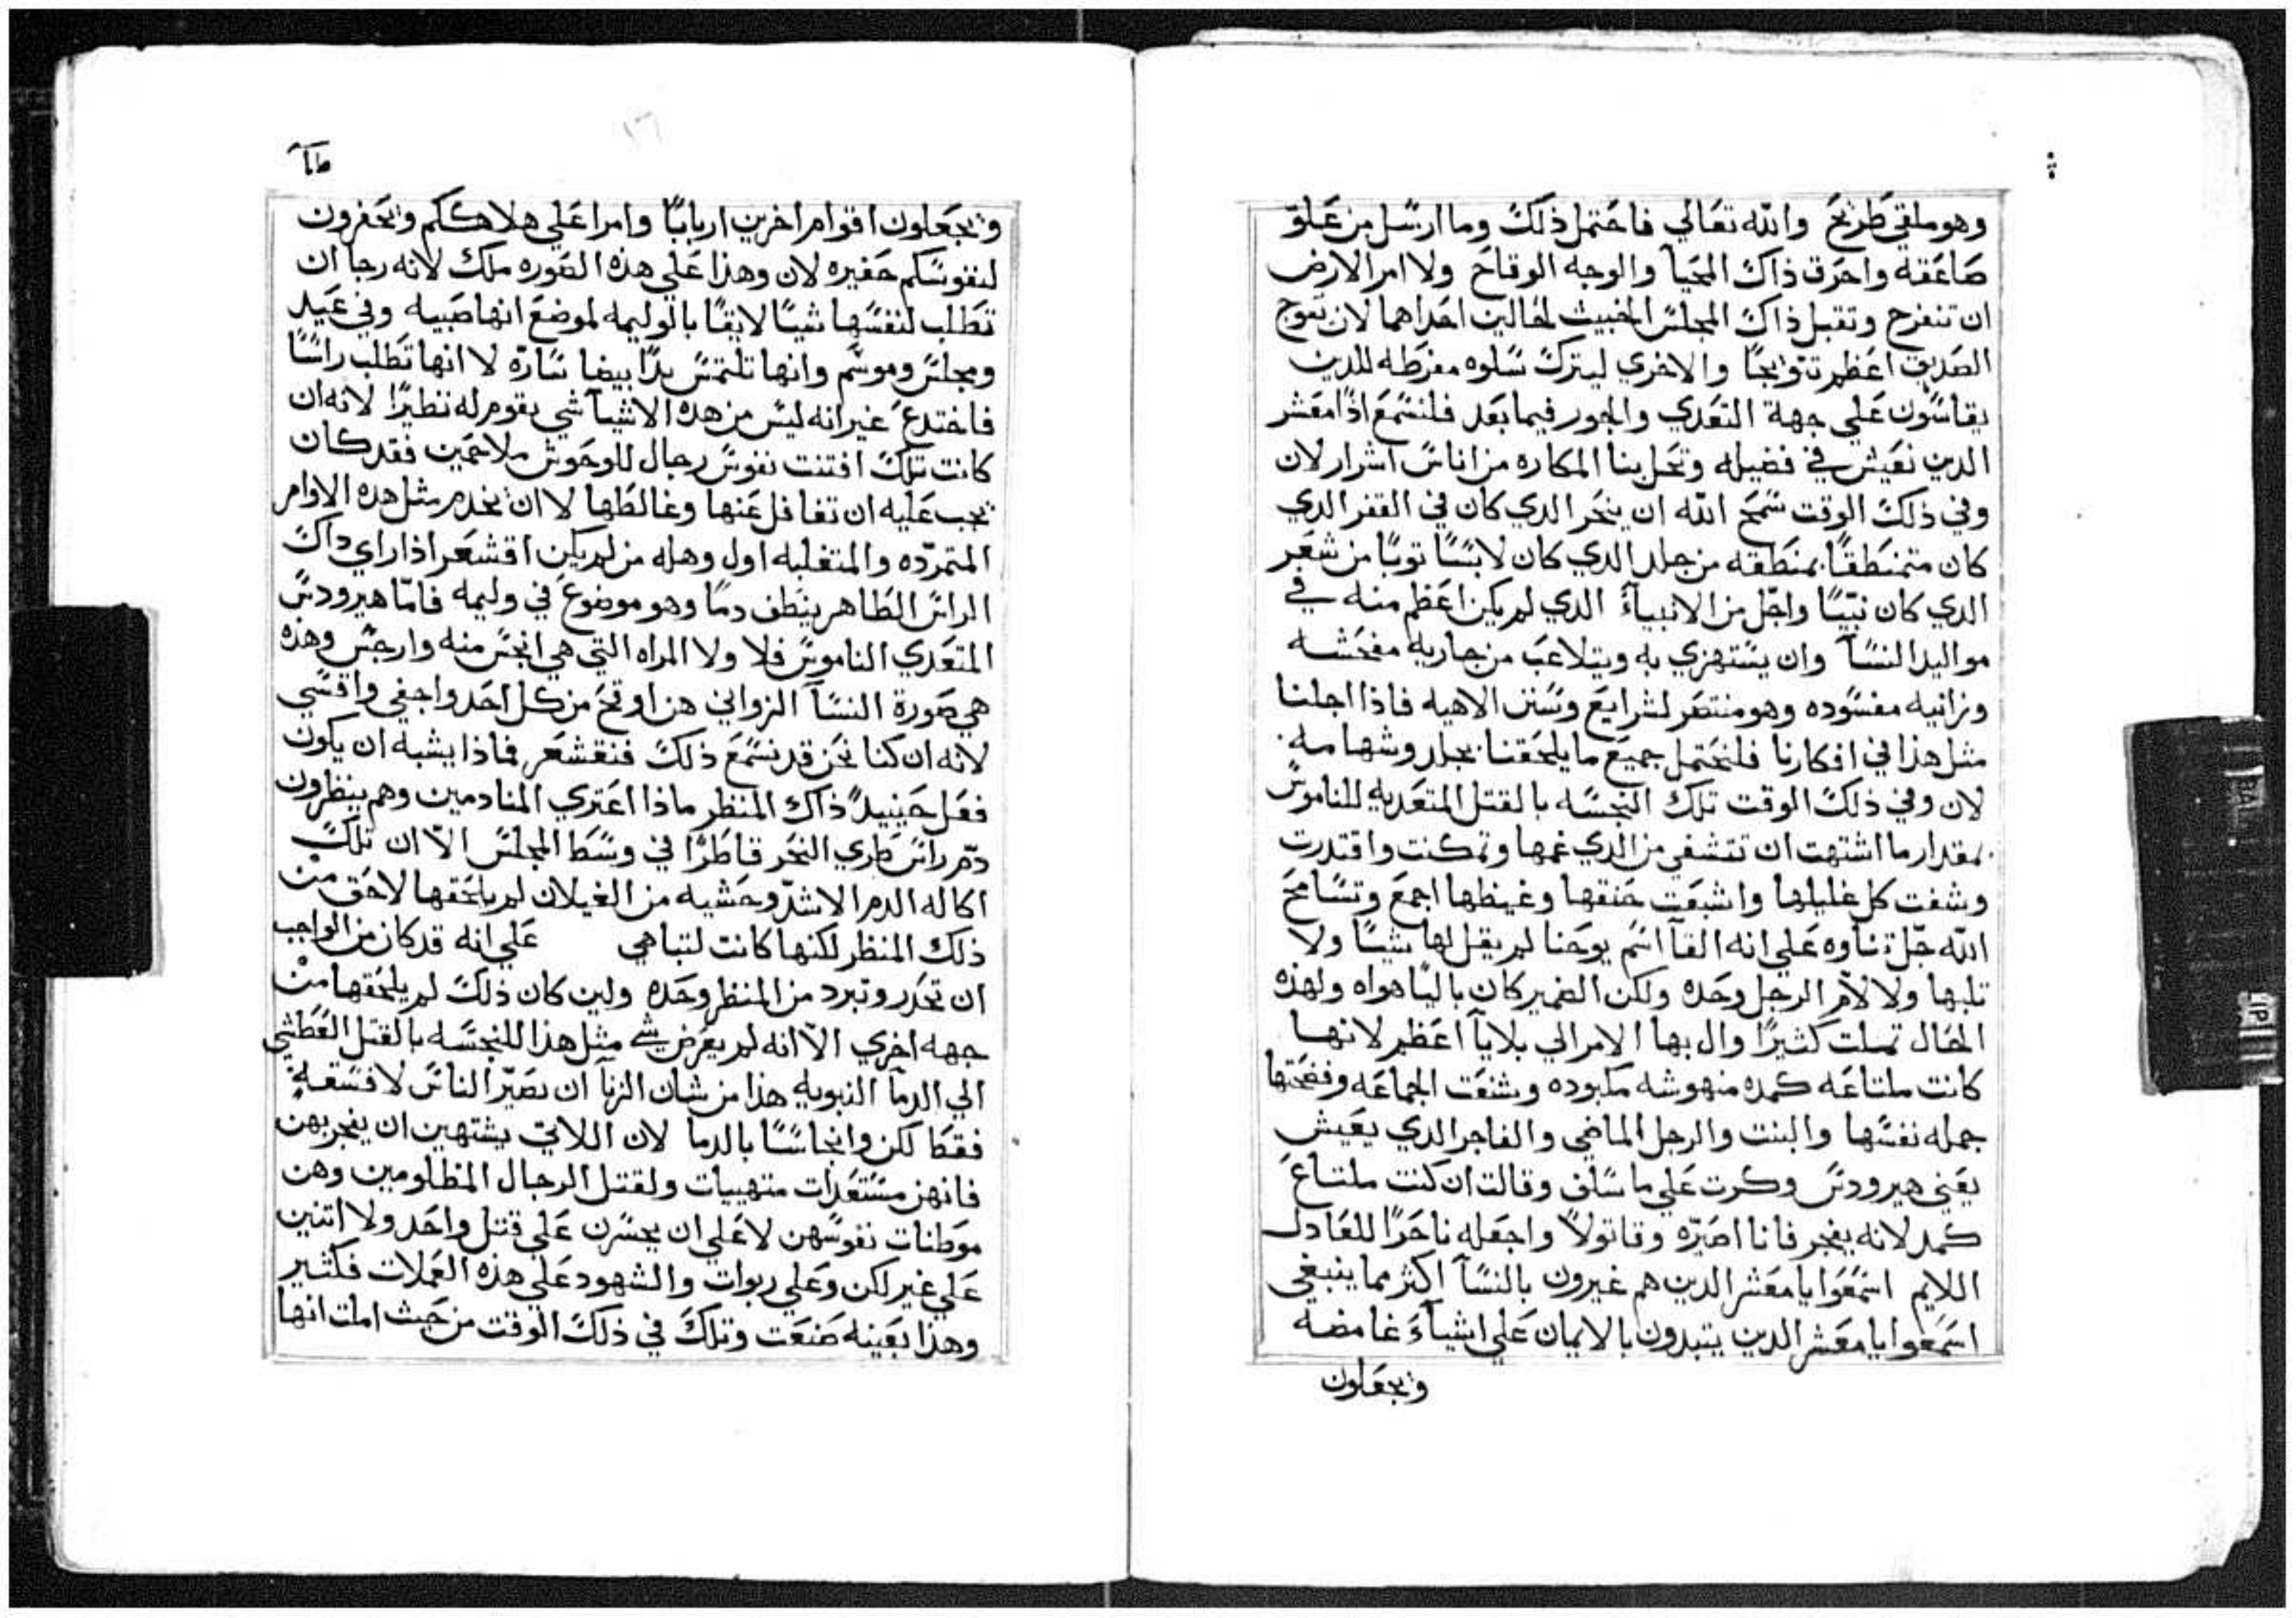 وهو ملقى طريح والله تعالي فاحتمل ذلك وما ارسل من علو
صاعقه واحرق ذاك المحيا والوجه الوقاح ولا امر الارض
ان تنفرج وتقبل ذاك المجلس الخبيث لخالين احداهما لان يتوج
الصديق اعظم تتويجا والاخري ليترك سلوه مفرطه للدين
يقاسون علي جهة التعدي والجور فيما بعد فلنسمع اذا معشر
الدين نعيش في فضيله وتحل بنا المكاره من اناس اشرار لان
وفي ذلك الوقت سمح الله ان ينحر الدي كان في القفر الدي
كان متمنطقا بمنطقه من جلد الدي كان لابسا توبا من شعر
الدي كان نبيا واجل من الانبياء الدي لم يكن اعظم منه في
مواليد النسا وان يستهزي به ويتلاعب من جاريه مفحشه
وزانيه مفسوده وهو منتصر لشرايع وسنن الاهيه فاذا اجلنا
مثل هذا في افكارنا فلنحتمل جميع ما يلحقنا بجلد وشهامه
لان وفي ذلك الوقت تلك النجسه بالقتل المتعديه للناموس
بمقدار ما اشتهت ان تتشفي من الدي غمها وتمكنت واقتدرت
وشفت كل غليلها واشبعت حنقها وغيظها اجمع وتسامح
الله جل تناوه علي انه القا اسم يوحنا لم يقل لها شيا ولا
تلبها ولا لام الرجل وحده ولكن الضمير كان باليا هواه ولهذه
الحال تسلت كثيرا وال بها الامر الي بلايا اعظم لانها
كانت ملتاعه كمده منهوشه مكبوده وشنعت الجماعه وفضحتها
جمله نفسها والبنت والرجل الماضي والفاجر الدي يعيش
يعني هيرودس وكرت علي ما سلف وقالت ان كنت ملتاع
كمد لانه يفجر فانا اصيره وقاتولا واجعله ناحرا للعادل
اللايم اسمعوا يا معشر الدين هم غيرون بالنسا اكثر مما ينبغي
اسمعوا يا معشر الدين يتبدون بالايمان علي اشيا غامضه
وتجعلون
وتجعلون اقوام اخرين اربابا وامرا علي هلاككم وتحفرون
لنفوسكم حفيره لان وهذا علي هذه الصوره ملك لانه رجا ان
تطلب لنفسها شيا لايقا بالوليمه لموضع انها صبيه وفي عيد
ومجلس وموسم وانها تلتمس يدا بيضا ساره لا انها تطلب راسا
فاختدع غير انه ليس من هده الاشيا شي يقوم له نظيرا لانه ان
كانت تلك افتنت نفوس رجال للوحوش ملاحمين فقد كان
يجب عليه ان تغافل عنها وغالطها لا ان يخدم مثل هده الاوامر
المتمرده والمتغلبه اول وهله من لم يكن اقشعر اذا راي داك
الراس الطاهر ينطف دما وهو موضوع في وليمه فاما هيرودس
المتعدي الناموس فلا ولا المراه التي هي انجس منه وارجس وهذه
هي صورة النسا الزواني هن اوقح من كل احد واجفي واقسي
لانه ان كنا نحن قد نسمع ذلك فنقشعر فماذا يشبه ان يكون
فعل حينيد ذاك المنظر ماذا اعتري المنادمين وهم ينظرون
دم راس طري النحر قاطرا في وسط المجلس الا ان تلك
اكاله الدم الاشد وحشيه من الغيلان لم يلحقها لاحق من
ذلك المنظر لكنها كانت لتباهي علي انه قد كان من الواجب
ان تخدر وتبرد من المنظر وحده ولين كان ذلك لم يلحقها من
جهه اخري الا انه لم يعرض شي مثل هذا للنجسه بالقتل العطشي
الي الدما النبويه هذا من شان الزنا ان يصير الناس لا فسقه
فقط لكن وانجاسا بالدما لان اللاتي يشتهين ان يفجر بهن
فانهن مستعدات متهييات ولقتل الرجال المظلومين وهن
موطنات نفوسهن لا علي ان يجسرن علي قتل واحد ولا اتنين
علي غير لكن وعلي ربوات والشهود علي هذه العملات فكثير
وهذا بعينه صنعت وتلك في ذلك الوقت من حيث املت انها